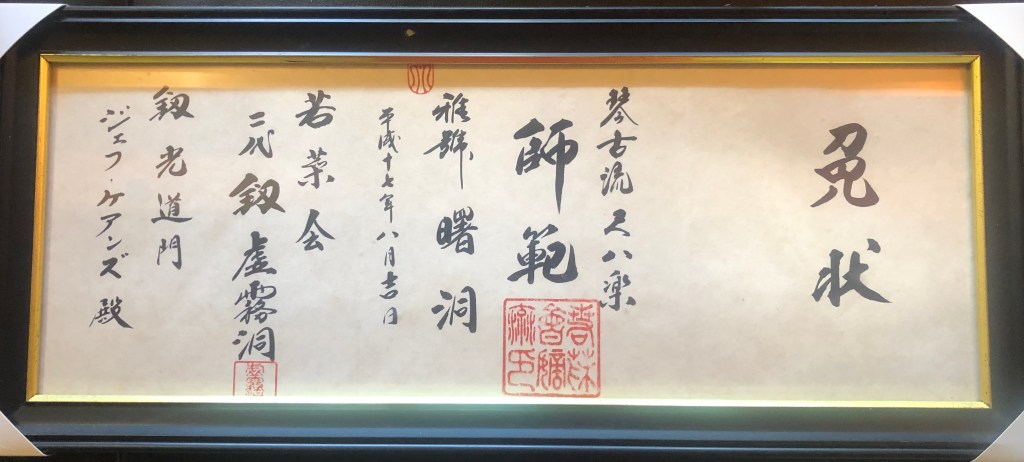 免状
琴古流尺八楽
師範
雅號 曙洞
平成十七年八月吉日
若菜会
二代 釼虚霧洞
釼光道門
ジェフ・ケアンズ殿